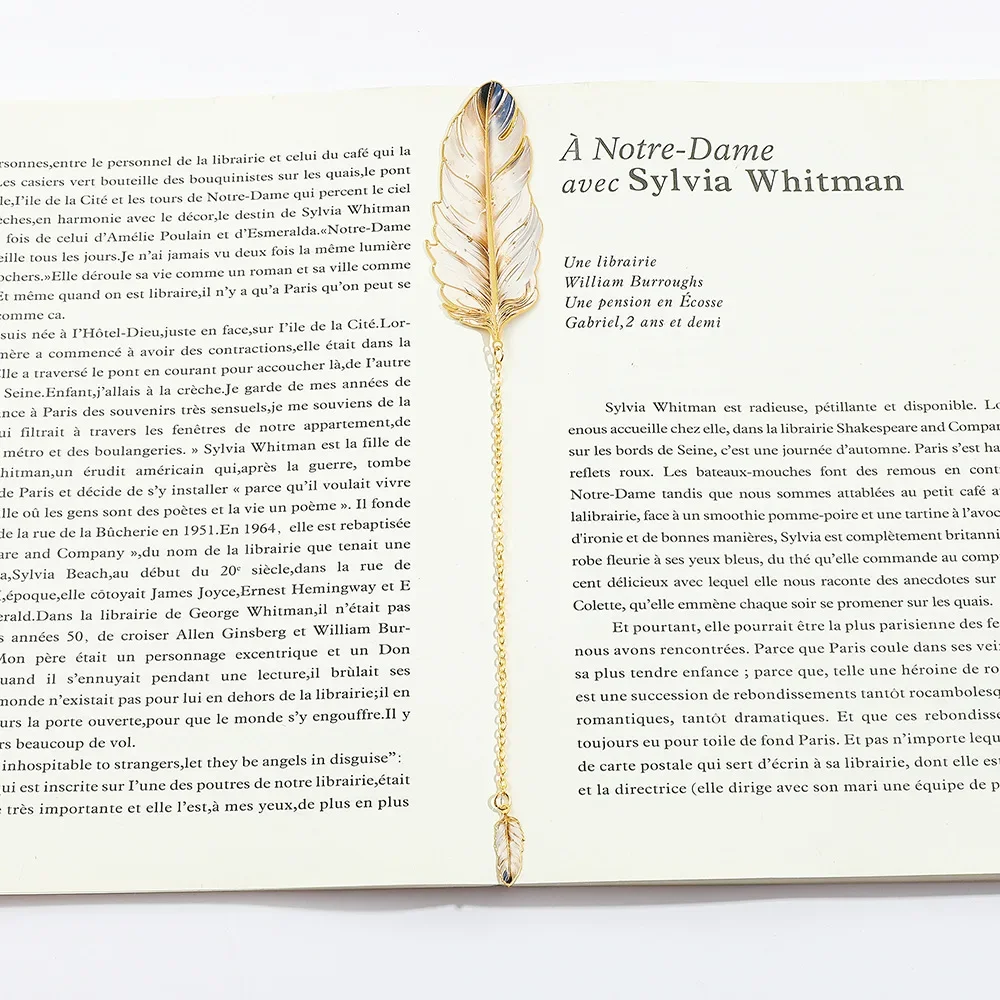 rsonnes,entre le personnel de la librairie et celui du café qui la
Les casiers vert bouteille des bouquinistes sur les quais,le pont
le,I'ile de la Cité et les tours de Notre-Dame qui percent le ciel
èches,en harmonie avec le décor,le destin de Sylvia Whitman
fois de celui d'Amélie Poulain et d'Esmeralda.«Notre-Dame
eille tous les jours.Je n'ai jamais vu deux fois la même lumière
ochers.»Elle déroule sa vie comme un roman et sa ville comme
Et même quand on est libraire,il n'y a qu'a Paris qu'on peut se
comme ca.
suis née à I'Hôtel-Dieu,juste en face,sur I'ile de la Cité.Lor-
mère a commencé à avoir des contractions,elle était dans la
lle a traversé le pont en courant pour accoucher là,de I'autre
Seine.Enfant,j'allais à la crèche.Je garde de mes années de
nce à Paris des souvenirs très sensuels,je me souviens de la
ui filtrait à travers les fenêtres de notre appartement,de
métro et des boulangeries. » Sylvia Whitman est la fille de
hitman,un érudit américain qui,après la guerre, tombe
de Paris et décide de s'y installer « parce qu'il voulait vivre
lle oû les gens sont des poètes et la vie un poème ». Il fonde
de la rue de la Bûcherie en 1951.En 1964, elle est rebaptisée
are and Company »,du nom de la librairie que tenait une
a,Sylvia Beach,au début du 20e siècle,dans la rue de
,époque,elle côtoyait James Joyce,Ernest Hemingway et E
erald.Dans la librairie de George Whitman,il n'était pas
s années 50, de croiser Allen Ginsberg et William Bur-
Mon père était un personnage excentrique et un Don
uand il s'ennuyait pendant une lecture,il brùlait ses
monde n'existait pas pour lui en dehors de la librairie;il en
urs la porte ouverte,pour que le monde s'y engouffre.Il y
rs beaucoup de vol.
inhospitable to strangers,let they be angels in disguise":
qui est inscrite sur I'une des poutres de notre librairie,était
très importante et elle l'est,à mes yeux,de plus en plus
À Notre-Dame
avec Sylvia Whitman
Une librairie
William Burroughs
Une pension en Écosse
Gabriel,2 ans et demi
Sylvia Whitman est radieuse, pétillante et disponible. Lo
enous accueille chez elle, dans la librairie Shakespeare and Compan
sur les bords de Seine, c'est une journée d'automne. Paris s'est ha
reflets roux. Les bateaux-mouches font des remous en cont
Notre-Dame tandis que nous sommes attablées au petit café a
lalibrairie, face à un smoothie pomme-poire et une tartine à l'avoc
d'ironie et de bonnes manières, Sylvia est complètement britanni
robe fleurie à ses yeux bleus, du thé qu'elle commande au comp
cent délicieux avec lequel elle nous raconte des anecdotes sur
Colette, qu'elle emmène chaque soir se promener sur les quais.
Et pourtant, elle pourrait être la plus parisienne des fe
nous avons rencontrées. Parce que Paris coule dans ses vei
sa plus tendre enfance ; parce que, telle une héroine de ro
est une succession de rebondissements tantôt rocambolesq
romantiques, tantôt dramatiques. Et que ces rebondisse
toujours eu pour toile de fond Paris. Et pas n'importe lequ
de carte postale qui sert d'écrin à sa librairie, dont elle est
et la directrice (elle dirige avec son mari une équipe de p